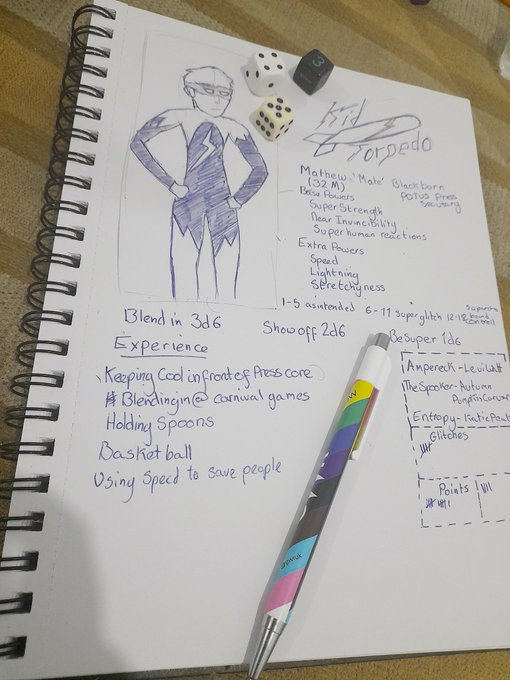 Kid
Torpedo
Mathew 'Mate' Blackborn
(32 M)
POTUS Press
Secutary
Base Powers
Super Strength
Near Invincibility
Super human reactions
Extra Powers
Speed
Lightning
Stretchyness
1-5 as intended 6-11 Super glitch 12-18
Blend in 3d6
Show off 2d6
Be Super 1d6
Experience
Keeping Cool in front of Press core
Blending in @ carnival games
Holding Spoons
Basketball
Using Speed to save people
Ampereck - Levi Watt
The Spooker - Autumn
Pumpkin Carver
Entropy - Katie Peat
Glitches
Points
3